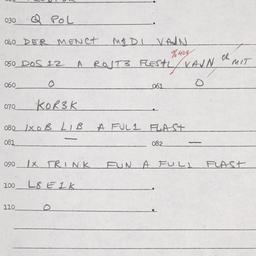 030 Q POL .
040 DER MENCT MADI VAJN
050 DOS 12 A ROJT3 FLESTL / VAJN d MIT
060 O 061 O
070 KOR3K .
080 IXOB LIB A FUL1 FLAST
081 — 082 —
090 IX TRINK FUN A FUL1 FLAST
100 L8E1K .
110 O .